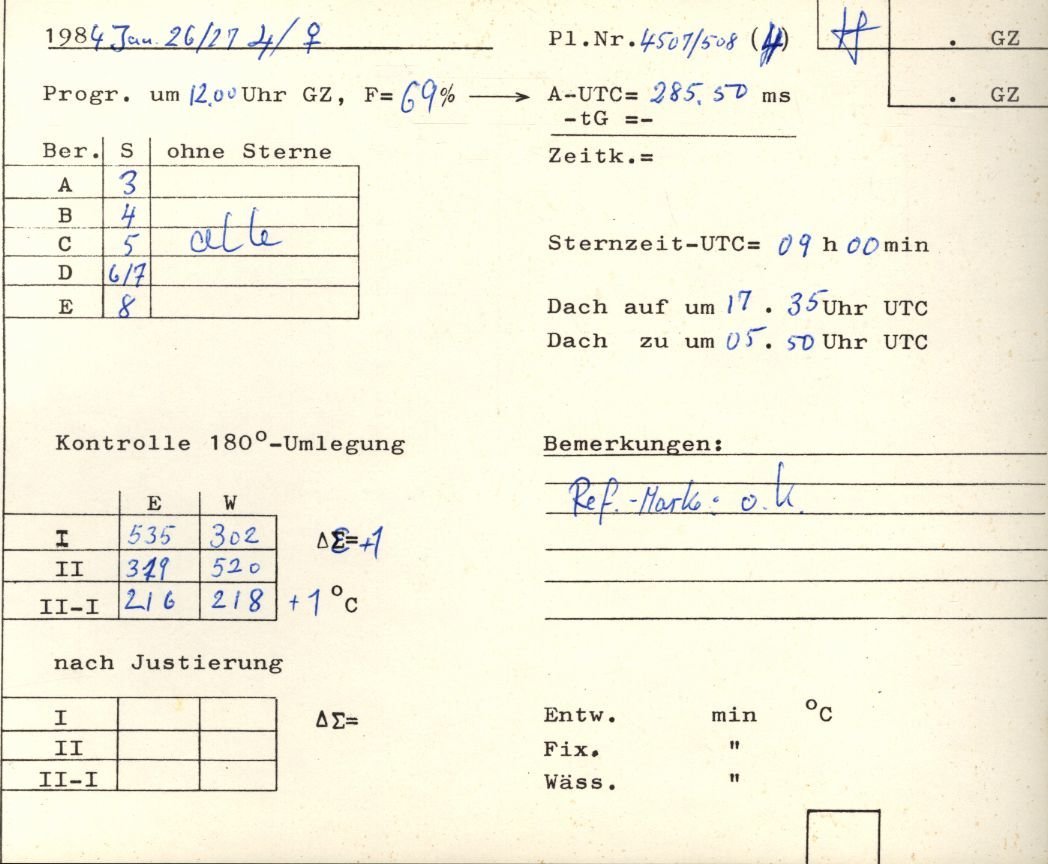 1984 Jan. 26/27 ♃/♀
Pl.Nr. 4507/508 . GZ
Progr. um 12.00 Uhr GZ, F= 69% → A-UTC= 285.50 ms . GZ
-tG =-
Zeitk.=
Ber. S ohne Sterne
A 3
B 4
C 5 alle
D 6/7
E 8
Sternzeit-UTC= 09 h 00 min
Dach auf um 17 . 35 Uhr UTC
Dach zu um 05 . 50 Uhr UTC
Kontrolle 180°-Umlegung
E W
I 535 302 ΔΣ= +1
II 319 520
II-I 216 218 +1 °C
Bemerkungen:
Ref.-Marke: o.k.
nach Justierung
I ΔΣ=
II
II-I
Entw. min °C
Fix. "
Wäss. "